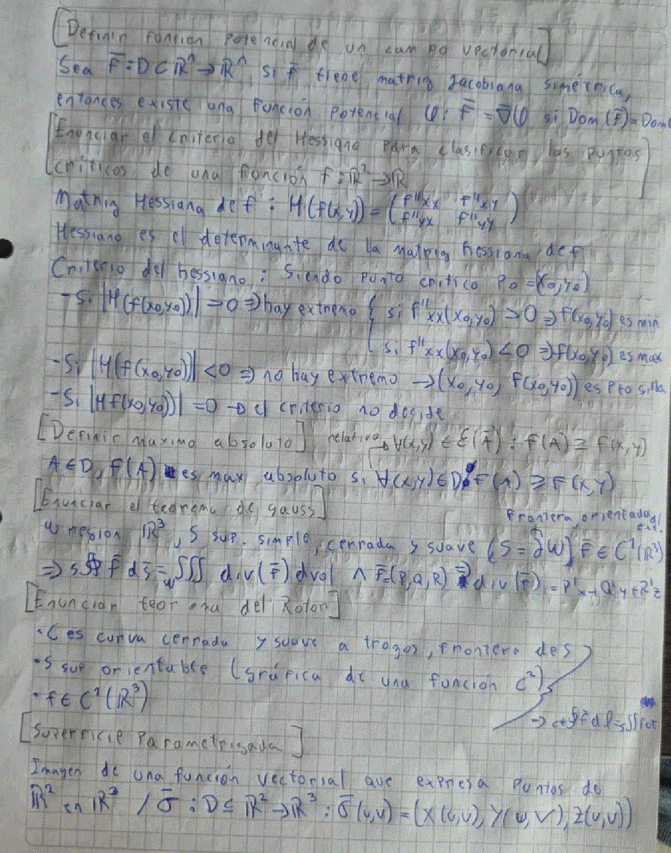 [Definir función potencial de un campo vectorial]
Sea F̄: D⊂ℝⁿ→ℝⁿ, si F̄ tiene matriz Jacobiana simétrica,
entonces existe una función potencial φ: F̄ = ∇̄φ si Dom(F̄)=Dom(
[Enunciar el criterio del Hessiano para clasificar los puntos
críticos de una función f: ℝ²→ℝ]
Matriz Hessiana de f: H(f(x,y)) = (f''xx f''xy
f''yx f''yy)
Hessiano es el determinante de la matriz hessiana de f
Criterio del hessiano: Siendo punto critico P₀=(x₀,y₀)
- Si |H(f(x₀,y₀))| >0 ⇒ hay extremo { si f''xx(x₀,y₀) >0 ⇒ f(x₀,y₀) es min
si f''xx(x₀,y₀) <0 ⇒ f(x₀,y₀) es max
- Si |H(f(x₀,y₀))| <0 ⇒ no hay extremo → (x₀,y₀, f(x₀,y₀)) es pto silla
- Si |Hf(x₀,y₀)| =0 → el criterio no decide
[Definir maximo absoluto] relativo → ∀(x,y) ∈ Ɛ(Ā): f(A) ≥ f(x,y)
A∈D, f(A) es max absoluto si ∀(x,y)∈D: f(A) ≥ f(x,y)
[Enunciar el teorema de gauss] frontera orientada
W region ℝ³, S sup. simple, cerrada y suave (S = ∂W) F̄∈C¹(ℝ³)
⇒ ∯ F̄ ds̄ = ∭ div(F̄) dvol ∧ F̄=(P,Q,R) ⇒ div(F̄) = P'x+Q'y+R'z
[Enunciar teorema del Rotor]
• C es curva cerrada y suave a trozos, frontera de S
• S sup orientable (gráfica de una función C²)
• f ∈ C¹(ℝ³)
→ ∮ f dl = ∬ rot
[Superficie Parametrizada]
Imagen de una función vectorial que expresa puntos de
ℝ² en ℝ³ / σ̄: D⊆ℝ²→ℝ³: σ̄(u,v) = (X(u,v), Y(u,v), Z(u,v))